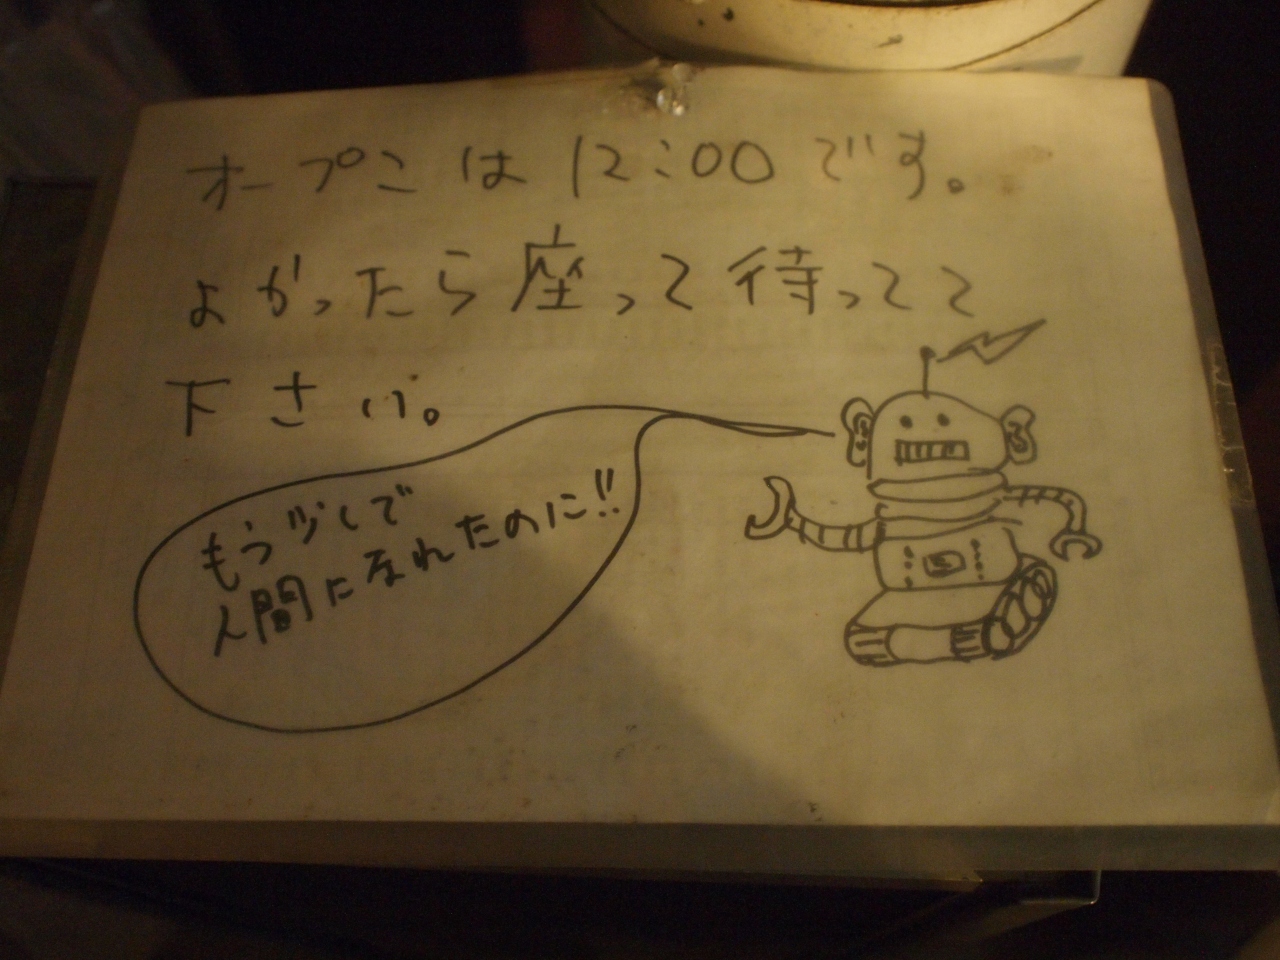 オープンは12:00です。
よかったら座って待ってて
下さい。
もう少しで
人間になれたのに!!